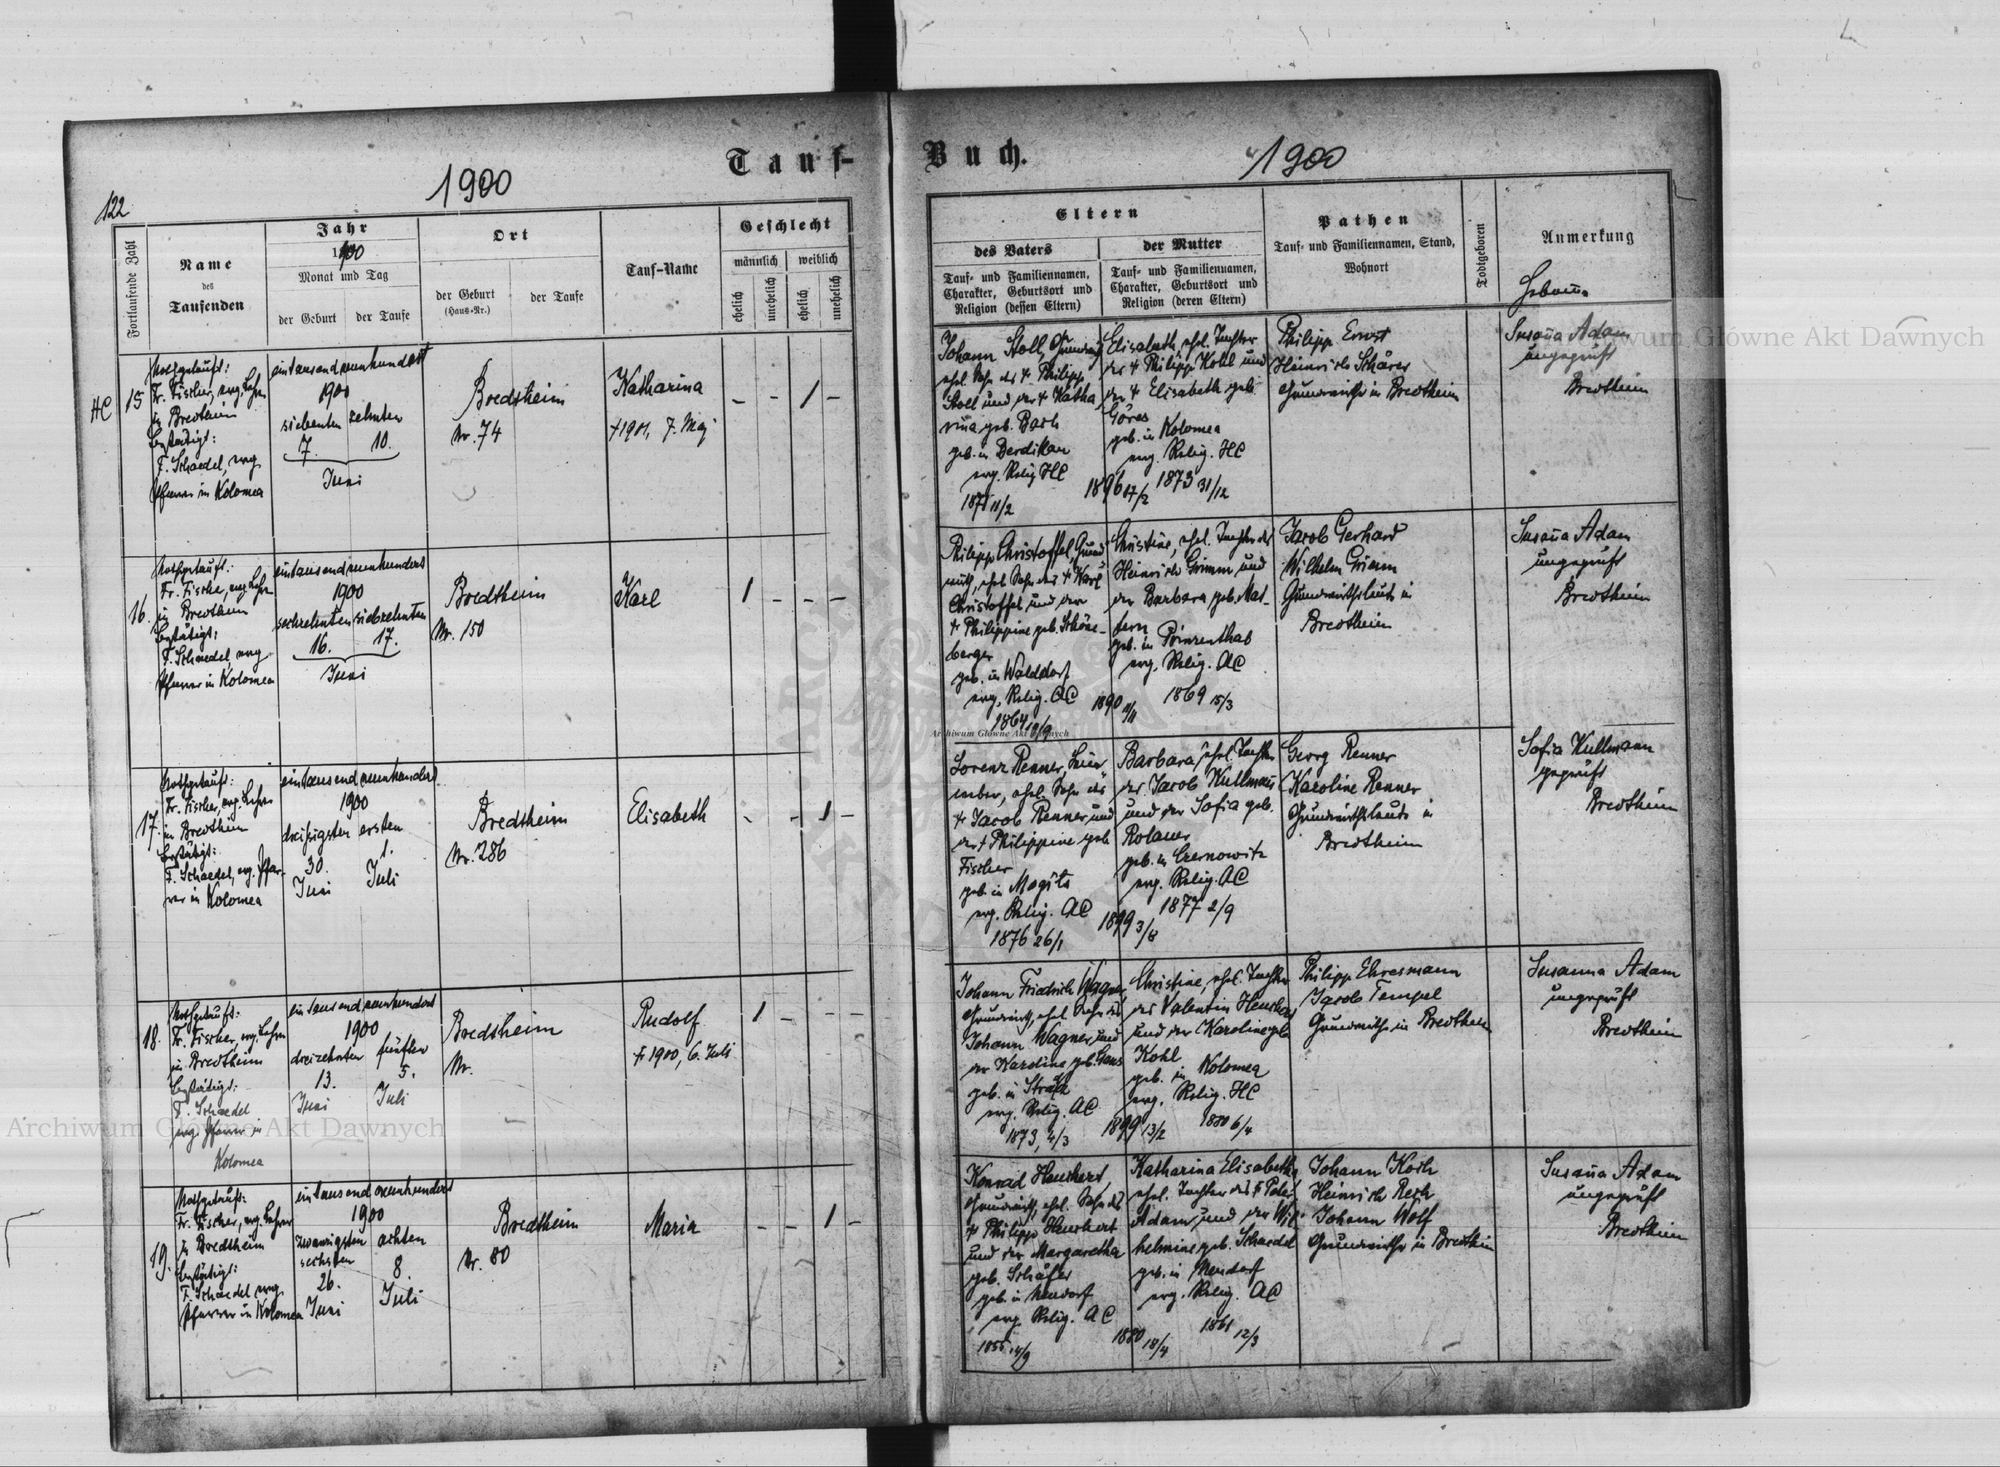 Tauf-
Buch.
1900
1900
122
Fortlaufende Zahl
Name
des
Taufenden
Jahr
1900
Monat und Tag
der Geburt
der Taufe
Ort
der Geburt
(Haus-Nr.)
der Taufe
Tauf-Name
Geschlecht
männlich
weiblich
ehelich
unehelich
ehelich
unehelich
Eltern
des Vaters
Tauf- und Familiennamen,
Charakter, Geburtsort und
Religion (dessen Eltern)
der Mutter
Tauf- und Familiennamen,
Charakter, Geburtsort und
Religion (deren Eltern)
Pathen
Tauf- und Familiennamen, Stand,
Wohnort
Todtgeboren
Anmerkung
HC
15
Nothgetauft:
Fr. Fischer, evg. Lehrer
in Bredtheim
bestätigt:
F. Schaedel, evg.
Pfarrer in Kolomea
eintausendneunhundert
1900
siebenten zehnten
7. 10.
Juni
Bredtheim
Nr. 74
Katharina
†1901, 7. Mai
– – 1 –
Johann Stoll, Grundwirt
ehel. Sohn des † Philipp
Stoll und der † Katha
rina geb. Bach
evg. Relig. HC
1871 11/2
1896 17/2
Elisabeth, ehel. Tochter
des † Philipp Kohl und
der † Elisabeth geb.
Göres
geb. in Kolomea
evg. Relig. HC
1873 31/12
Philipp Ernst
Heinrich Schärer
Grundwirthe in Bredtheim
Susanna Adam
ungeprüft
Bredtheim
16.
Nothgetauft:
Fr. Fischer, evg. Lehrer
in Bredtheim
bestätigt:
F. Schaedel, evg.
Pfarrer in Kolomea
eintausendneunhundert
1900
sechzehnten siebzehnten
16. 17.
Juni
Bredtheim
Nr. 150
Karl
1 – – –
Philipp Christoffel, Grund
wirth, ehel. Sohn des † Karl
Christoffel und der
† Philippine geb. Schöne-
berger
geb. in Walddorf
evg. Relig. AC
1864 18/9
1890 11/11
Christine, ehel. Tochter des
Heinrich Grimm und
der Barbara geb. Mat-
tern
evg. Relig. AC
1869 15/3
Jacob Gerhard
Wilhelm Grimm
Grundwirthsleute in
Bredtheim
Susanna Adam
ungeprüft
Bredtheim
17.
Nothgetauft:
Fr. Fischer, evg. Lehrer
in Bredtheim
bestätigt:
F. Schaedel, evg. Pfar-
rer in Kolomea
eintausendneunhundert
1900
dreißigsten ersten
30. 1.
Juni Juli
Bredtheim
Nr. 286
Elisabeth
– – 1 –
Lorenz Renner,
ehel. Sohn des
† Jacob Renner und
der † Philippine geb.
Fischer
evg. Relig. AC
1876 26/1
1899 3/8
Barbara, ehel. Tochter
des Jacob Kullmann
und der Sofia geb.
geb. in Czernowitz
evg. Relig. AC
1877 2/9
Georg Renner
Karoline Renner
Grundwirthsleute in
Bredtheim
Sofia Kullmann
geprüft
Bredtheim
18.
Nothgetauft:
Fr. Fischer, evg. Lehrer
in Bredtheim
bestätigt:
F. Schaedel
evg. Pfarrer in
Kolomea
eintausendneunhundert
1900
dreizehnten fünften
13. 5.
Juni Juli
Bredtheim
Nr.
Rudolf
†1900, 6. Juli
1 – – –
Johann Friedrich Wagner,
Grundwirt, ehel. Sohn des
Johann Wagner und
der Karoline geb. Gans
evg. Relig. AC
1873, 4/3
1899 13/2
Christine, ehel. Tochter
des Valentin
und der Karoline geb.
Kohl
geb. in Kolomea
evg. Relig. HC
1880 6/4
Philipp Ehresmann
Jacob Tempel
Grundwirthe in Bredtheim
Susanna Adam
ungeprüft
Bredtheim
19.
Nothgetauft:
Fr. Fischer, evg. Lehrer
in Bredtheim
bestätigt:
F. Schaedel evg.
Pfarrer in Kolomea
eintausendneunhundert
1900
zwanzigsten achten
sechsten
26. 8.
Juni Juli
Bredtheim
Nr. 80
Maria
– – 1 –
Konrad Heuchert,
Grundwirt, ehel. Sohn des
† Philipp Heuchert
und der Margaretha
geb. Schäfer
geb. in Neudorf
evg. Relig. AC
1855 14/9
1880 18/4
Katharina Elisabetha
ehel. Tochter des † Peter
Adam und der Wil-
helmine geb. Schaedel
geb. in Neudorf
evg. Relig. AC
1861 12/3
Johann Koch
Heinrich Rech
Johann Wolf
Grundwirthe in Bredtheim
Susanna Adam
ungeprüft
Bredtheim
Archiwum Główne Akt Dawnych
Archiwum Główne Akt Dawnych
Archiwum Główne Akt Dawnych